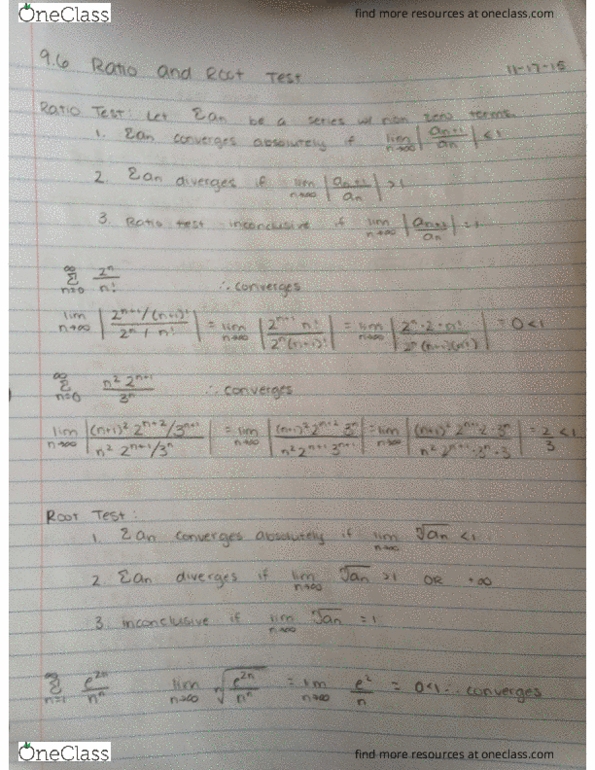 OneClass find more resources at oneclass.com
9.6 Ratio and Root Test 11-17-15
Ratio Test: Let Σan be a series w/ non zero terms.
1. Σan converges absolutely if lim n→∞ |an+1/an| < 1
2. Σan diverges if lim n→∞ |an+1/an| > 1
3. Ratio test inconclusive if lim n→∞ |an+1/an| = 1
∞ Σ n=0 2ⁿ/n! ∴ converges
lim n→∞ |2ⁿ⁺¹/(n+1)! / 2ⁿ/n!| = lim n→∞ |2ⁿ⁺¹ n! / 2ⁿ(n+1)!| = lim n→∞ |2ⁿ·2·n! / 2ⁿ(n+1)(n!)| = 0 < 1
∞ Σ n=0 n² 2ⁿ⁺¹/3ⁿ ∴ converges
lim n→∞ |(n+1)² 2ⁿ⁺²/3ⁿ⁺¹ / n² 2ⁿ⁺¹/3ⁿ| = lim n→∞ |(n+1)² 2ⁿ⁺² 3ⁿ / n² 2ⁿ⁺¹ 3ⁿ⁺¹| = lim n→∞ |(n+1)² 2ⁿ⁺¹·2·3ⁿ / n² 2ⁿ⁺¹·3ⁿ·3| = 2/3 < 1
Root Test:
1. Σan converges absolutely if lim n→∞ ⁿ√an < 1
2. Σan diverges if lim n→∞ ⁿ√an > 1 OR = ∞
3. inconclusive if lim n→∞ ⁿ√an = 1
∞ Σ n=1 e²ⁿ/nⁿ lim n→∞ ⁿ√(e²ⁿ/nⁿ) = lim n→∞ e²/n = 0 < 1 ∴ converges
OneClass find more resources at oneclass.com